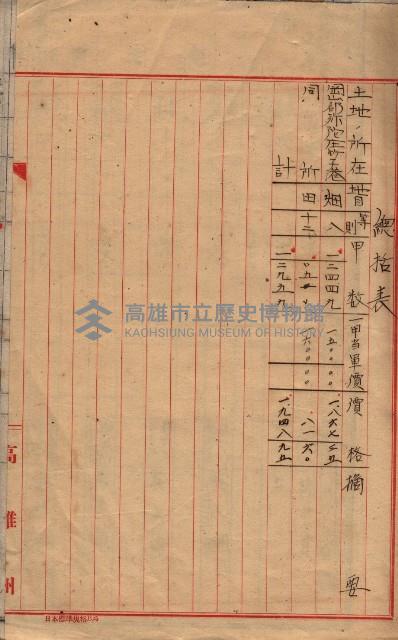 總括表
土地ノ所在 地目 等則 甲數 一甲当單價 價格 摘要
岡山郡弥陀庄 畑 八 一二四四九 一五〇〇〇〇 一、八六七三五
同所 田 十二 〇五一〇 一六〇〇〇〇 八一六〇
計 一二九五九 一、九四八九五
高雄州
日本標準規格
高雄市立歷史博物館
KAOHSIUNG MUSEUM OF HISTORY